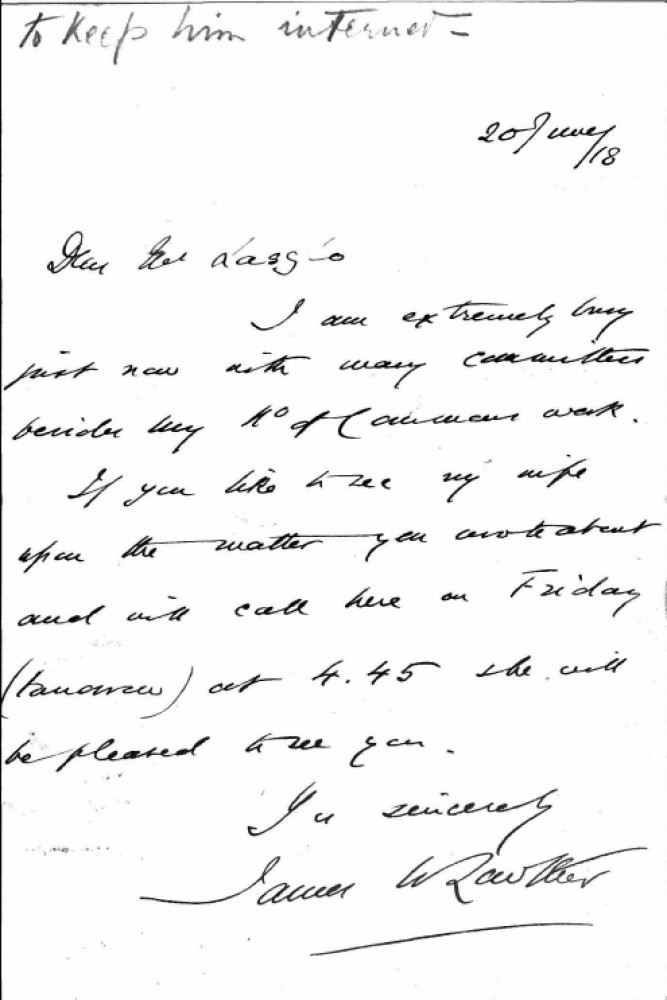 to keep him interned –
20 June
/18
Dear Mrs László
I am extremely busy
just now with many committees
besides my Ho of Commons work.
If you like to see my wife
upon the matter you wrote about
and will call here on Friday
(tomorrow) at 4.45 she will
be pleased to see you.
Yrs sincerely
James W Lowther